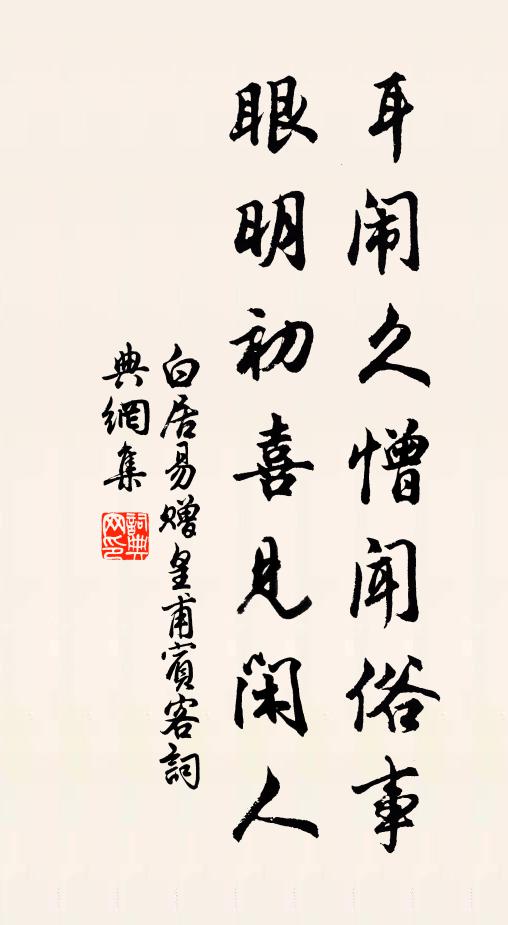 耳闹久憎闻俗事
眼明初喜見闲人
白居易赠皇甫賓客詞
典網集
詞典
网印